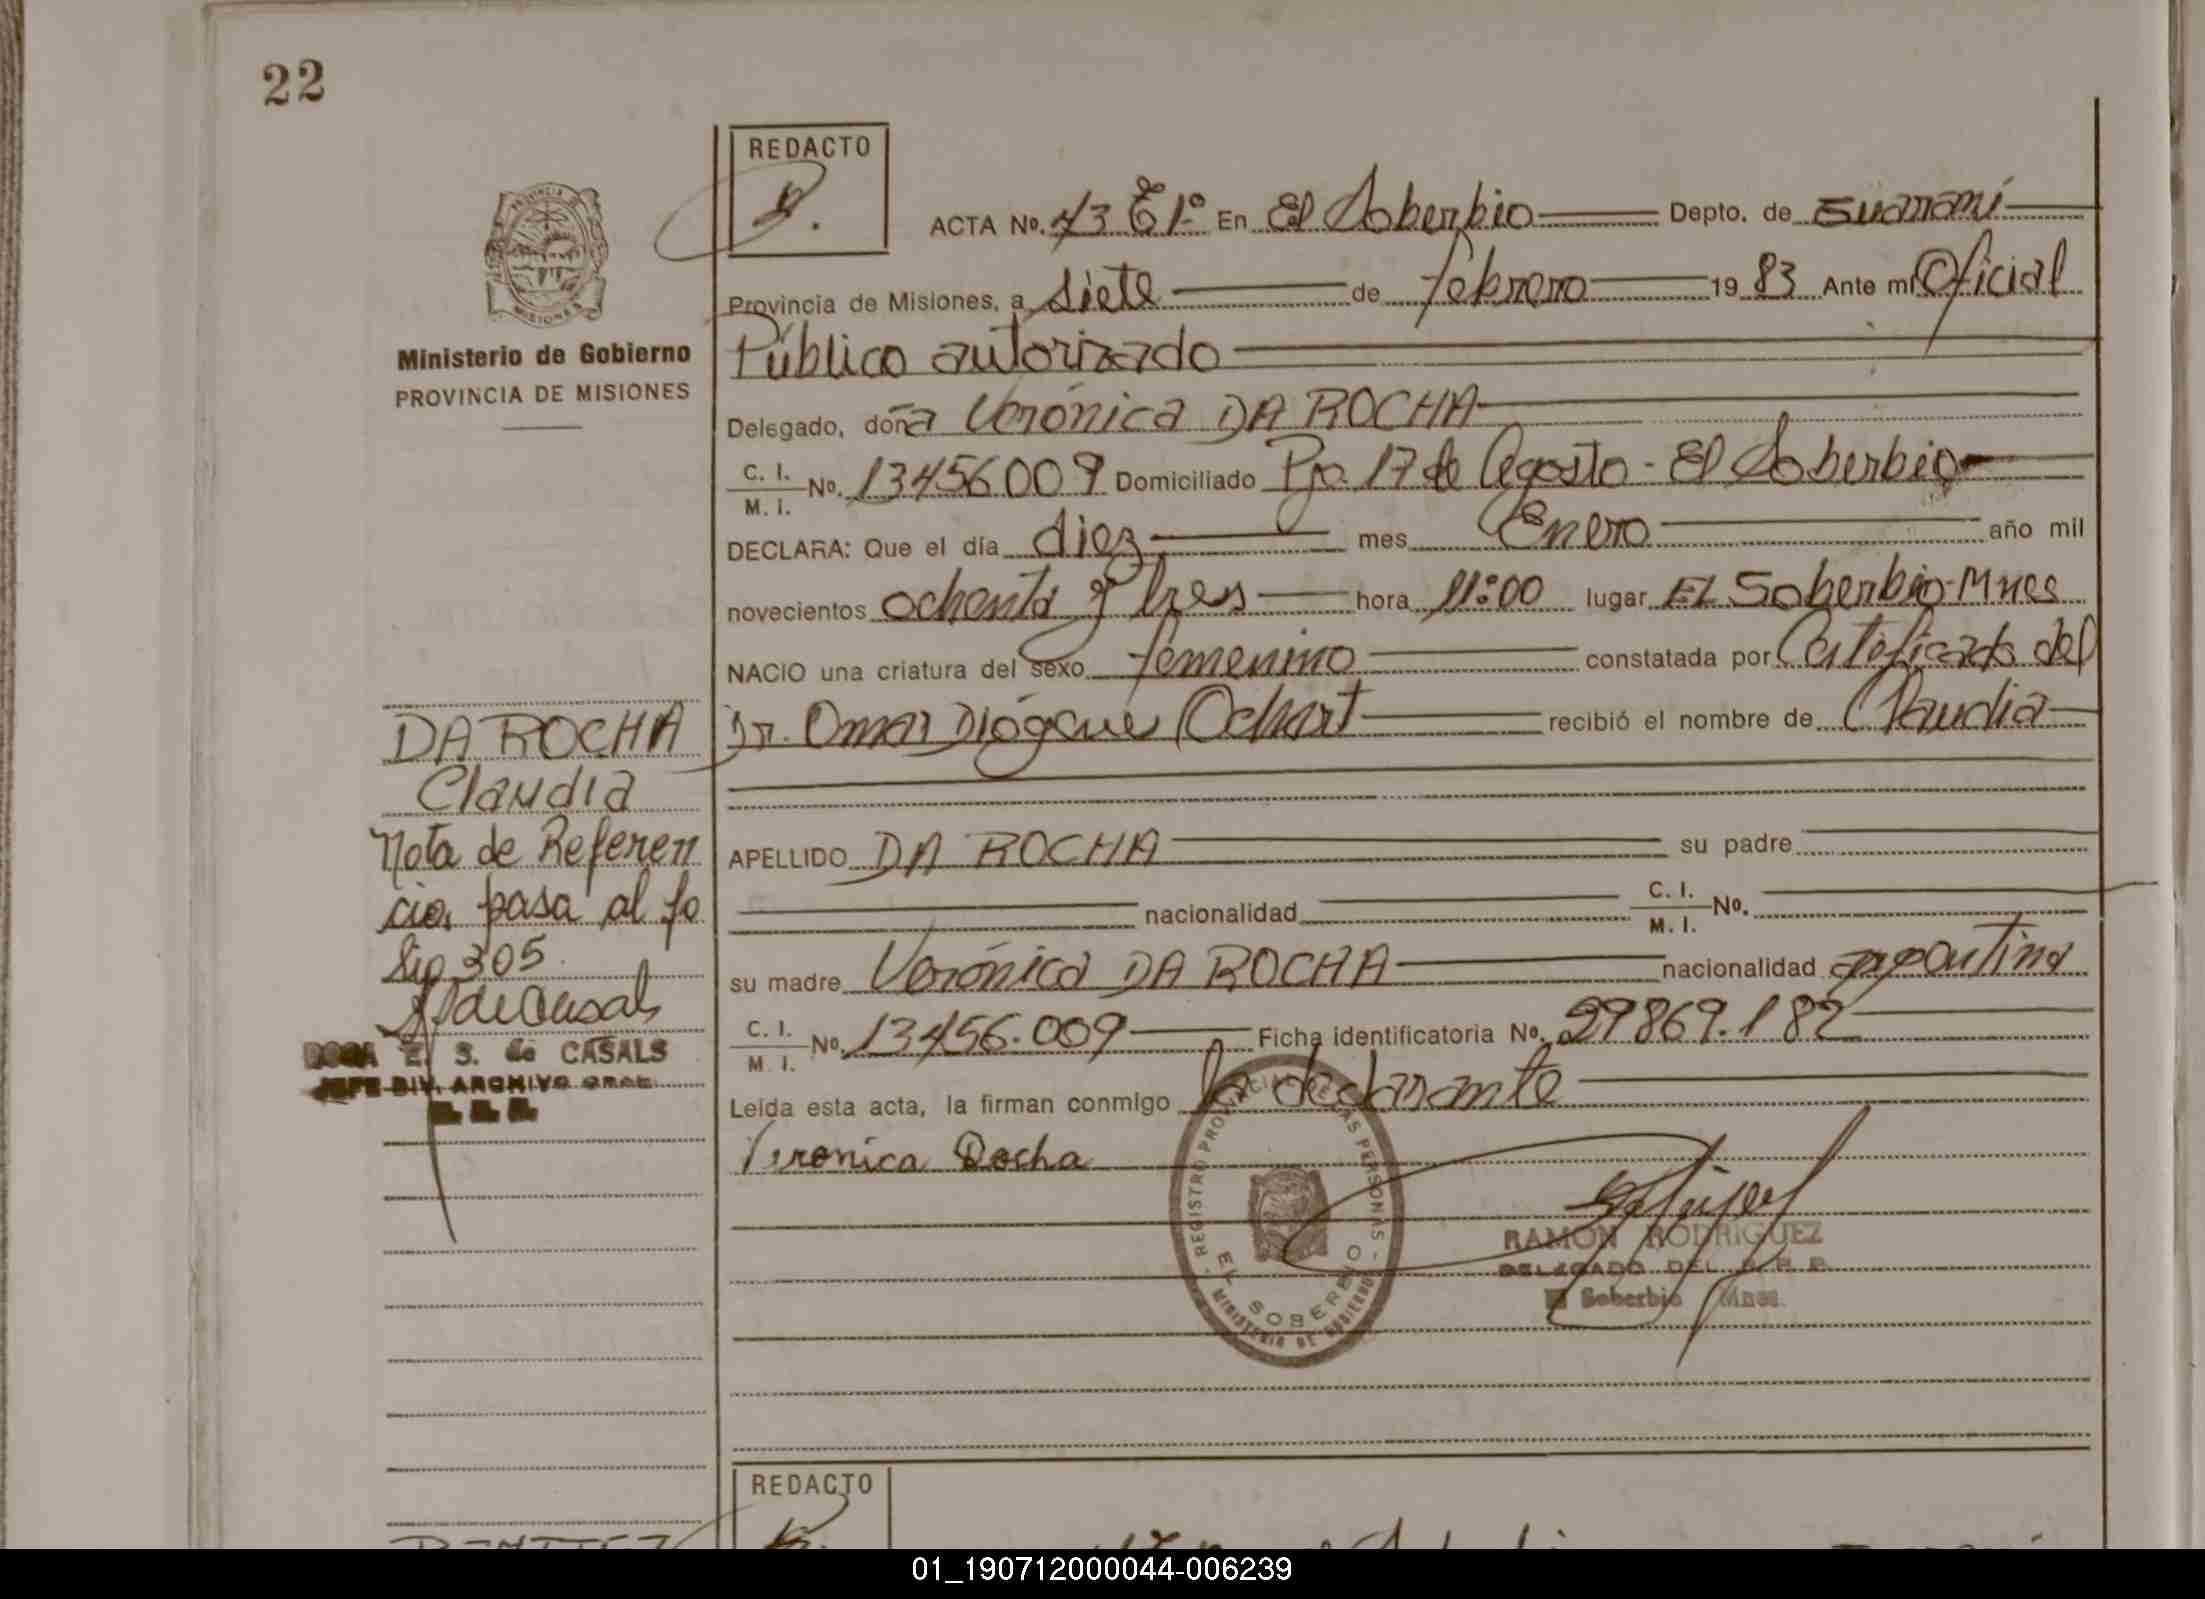 22
REDACTO
ACTA No. 43 T 1º En El Soberbio Depto. de Guaraní
Provincia de Misiones, a siete de febrero 19 83 Ante mi Oficial
Público autorizado
Delegado, doña Verónica DA ROCHA
C. I.
M. I. No. 13456009 Domiciliado Pje. 17 de Agosto - El Soberbio
DECLARA: Que el día diez mes Enero año mil
novecientos ochenta y tres hora 11:00 lugar El Soberbio-Mnes
NACIO una criatura del sexo femenino constatada por Certificado del
Dr. Omar Diógene Ochart recibió el nombre de Claudia
APELLIDO DA ROCHA su padre
nacionalidad C. I.
M. I. No.
su madre Verónica DA ROCHA nacionalidad argentina
C. I.
M. I. No. 13456.009 Ficha identificatoria No. 29869.182
Leida esta acta, la firman conmigo la declarante
Veronica Rocha
REGISTRO PROVINCIAL DE LAS PERSONAS
EL SOBERBIO
MINISTERIO DE GOBIERNO
RAMON RODRIGUEZ
DELEGADO DEL R. P. P.
El Soberbio Mnes.
PROVINCIA DE
MISIONES
Ministerio de Gobierno
PROVINCIA DE MISIONES
DA ROCHA
Claudia
Nota de Referen
cia, pasa al fo
lio 305
S. de Casals
E. S. de CASALS
JEFE DIV. ARCHIVO GRAL.
REDACTO
01_190712000044-006239